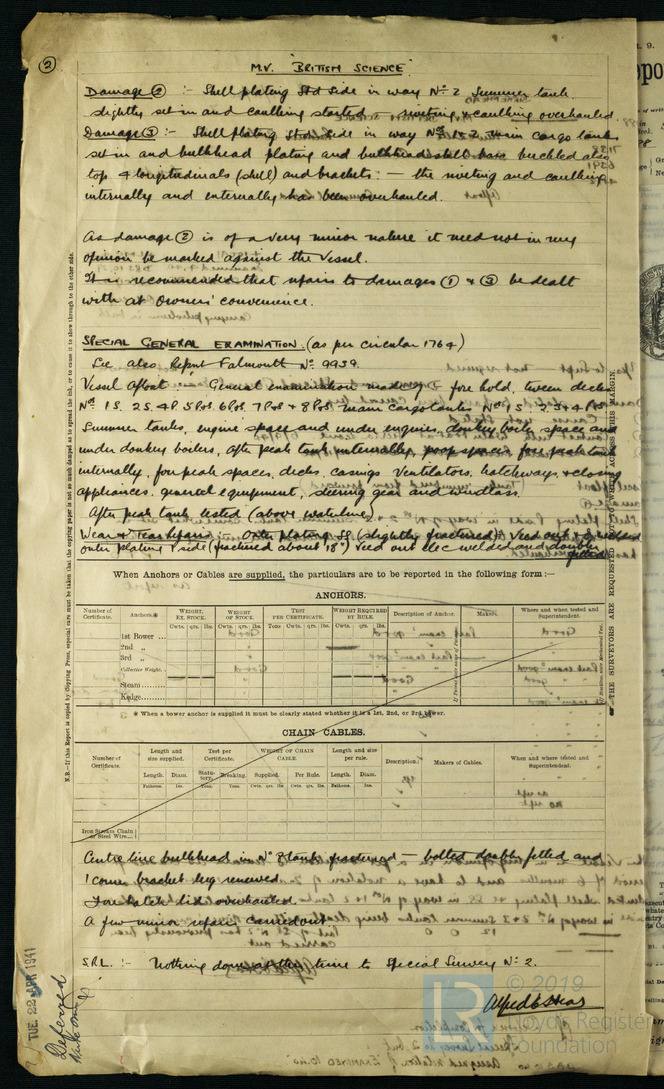 ②
M.V. "BRITISH SCIENCE"
Damage ② :- Shell plating Std side in way Nº 2 Summer tank
slightly set in and caulking started – riveting & caulking overhauled.
Damage ③ :- Shell plating Std side in way Nºs 1 & 2 main cargo tanks
set in and bulkhead plating and buckled also
top 4 longitudinals (shell) and brackets :- the riveting and caulking
internally and externally has been overhauled.
As damage ② is of a very minor nature it need not in my
opinion be marked against the Vessel.
It is recommended that repairs to damages ① & ③ be dealt
with at Owners' convenience.
SPECIAL GENERAL EXAMINATION. (as per circular 1764)
See also Report Falmouth Nº 9939.
Vessel Afloat. General examination made of fore hold, tween decks
Nºs 1S. 2S. 4P. 5P&S. 6P&S. 7P&S & 8P&S main cargo tanks Nºs 1S. 2S & 4 P&S
Summer tanks, engine space and under engines, donkey boiler space and
under donkey boilers, after peak tank internally, poop spaces, fore peak tank
internally, fore peak spaces, decks, casings ventilators, hatchways & closing
appliances, general equipment, steering gear and windlass.
After peak tank tested (above waterline)
Wear & Tear Repairs. Outer plating S.S. (slightly fractured) Veed out & welded
outer plating side (fractured about 18") Veed out elec welded and doubler
fitted
When Anchors or Cables are supplied, the particulars are to be reported in the following form:—
ANCHORS.
Number of Certificate. Anchors.* WEIGHT, EX. STOCK. WEIGHT OF STOCK. TEST PER CERTIFICATE. WEIGHT REQUIRED BY RULE. Description of Anchor. Makers. Where and when tested and Superintendent.
Cwts. qrs. lbs. Cwts. qrs. lbs. Tons Cwts. qrs. lbs. Cwts. qrs. lbs.
1st Bower ...
2nd „
3rd „
Collective Weight.
Steam
Kedge
* When a bower anchor is supplied it must be clearly stated whether it is a 1st, 2nd, or 3rd bower.
CHAIN CABLES.
Number of Certificate. Length and size supplied. Test per Certificate. WEIGHT OF CHAIN CABLE. Length and size per rule. Description. Makers of Cables. When and where tested and Superintendent.
Length. Diam. Statutory. Breaking. Supplied. Per Rule. Length. Diam.
Fathoms. Ins. Tons. Tons. Cwts. qrs. lbs. Cwts. qrs. lbs. Fathoms. Ins.
Iron Stream Chain or Steel Wire
Centre line bulkhead in Nº 8 tank fractured – bolted doubler fitted and
1 corner bracket leg renewed
Fore hatch lid overhauled.
A few minor repairs carried out
S.R.L. :- Nothing done at this time to Special Survey Nº 2.
TUE. 22 APR 1941
Deferred
N.B.—If this Report is copied by Copying Press, especial care must be taken that the copying paper is not so much damped as to spread the ink, or to cause it to show through to the other side.
THE SURVEYORS ARE REQUESTED NOT TO WRITE ACROSS THIS MARGIN.
LR
© 2019
Lloyd's Register
Foundation